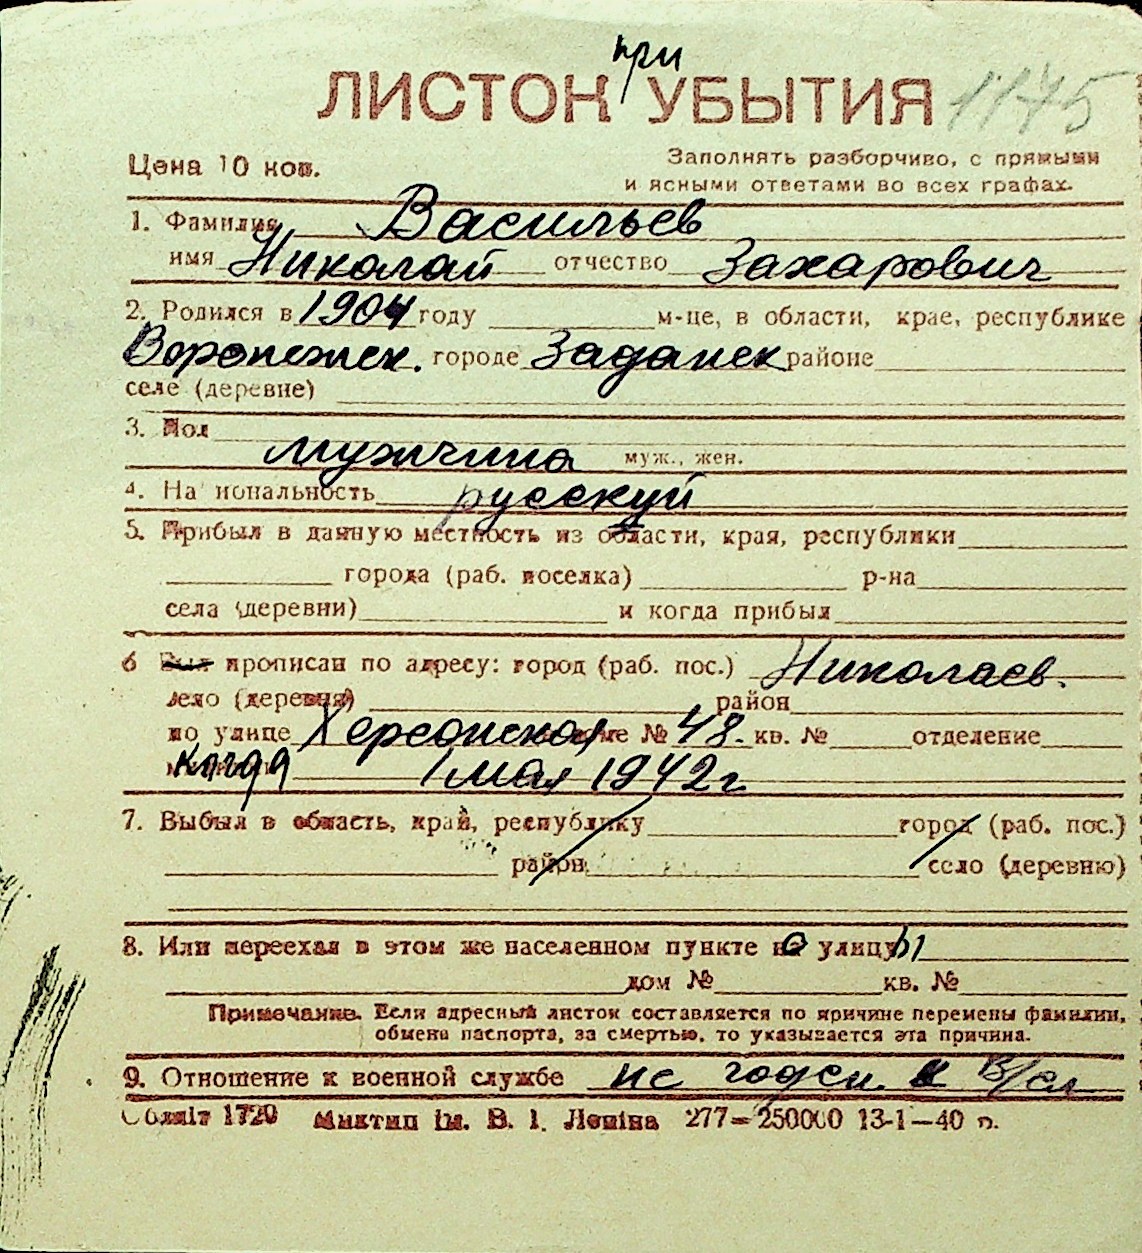 при
ЛИСТОК УБЫТИЯ 1175
Цена 10 коп. Заполнять разборчиво, с прямыми
и ясными ответами во всех графах.
1. Фамилия Васильев
имя Николай отчество Захарович
2. Родился в 1904 году м-це, в области, крае, республике
Воронежск. городе Заданск районе
селе (деревне)
3. Пол мужчина муж., жен.
4. На иональность русскуй
5. Прибыл в данную местность из области, края, республики
города (раб. поселка) р-на
села (деревни) и когда прибыл
6 Был прописан по адресу: город (раб. пос.) Николаев.
село (деревня) район
по улице Херсонская № 48. кв. № отделение
когда 1 мая 1942 г.
7. Выбыл в область, край, республику город (раб. пос.)
район село (деревню)
8. Или переехал в этом же населенном пункте на улицу
дом № кв. №
Примечание. Если адресный листок составляется по причине перемены фамилии,
обмена паспорта, за смертью, то указывается эта причина.
9. Отношение к военной службе не годен к в/сл
Обліт 1720 Миктип ім. В. І. Леніна 277—250000 13-1—40 р.